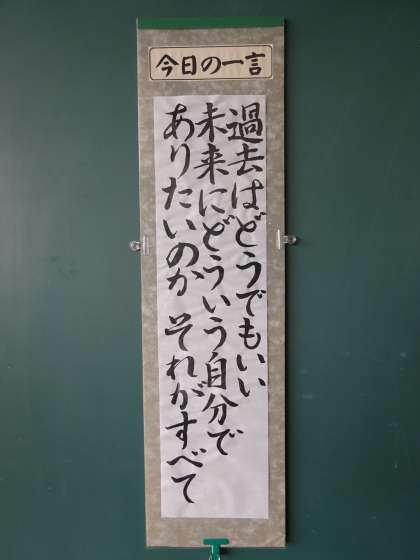 今日の一言
過去はどうでもいい
未来にどういう自分で
ありたいのか それがすべて